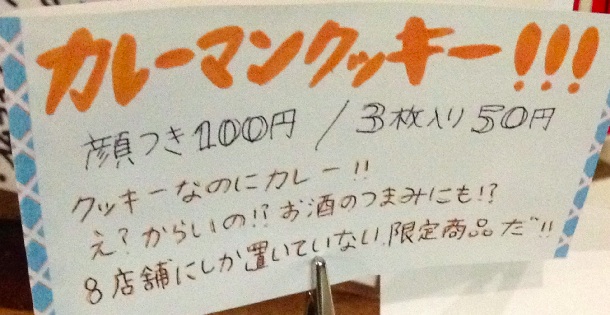 カレーマンクッキー!!!
顔つき100円 / 3枚入り50円
クッキーなのにカレー!!
え?からいの!?お酒のつまみにも!?
8店舗にしか置いていない限定商品だ!!